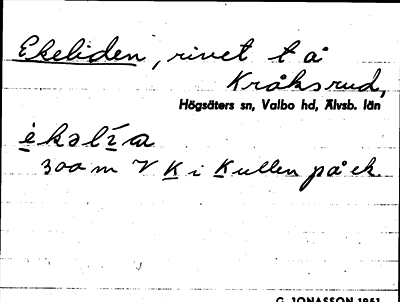 Ekeliden, rivet t å
Kråksrud,
Högsäters sn, Valbo hd, Älvsb. län
èkəlí̵a
300 m V K i Kullen på ek.
G. JONASSON 1951